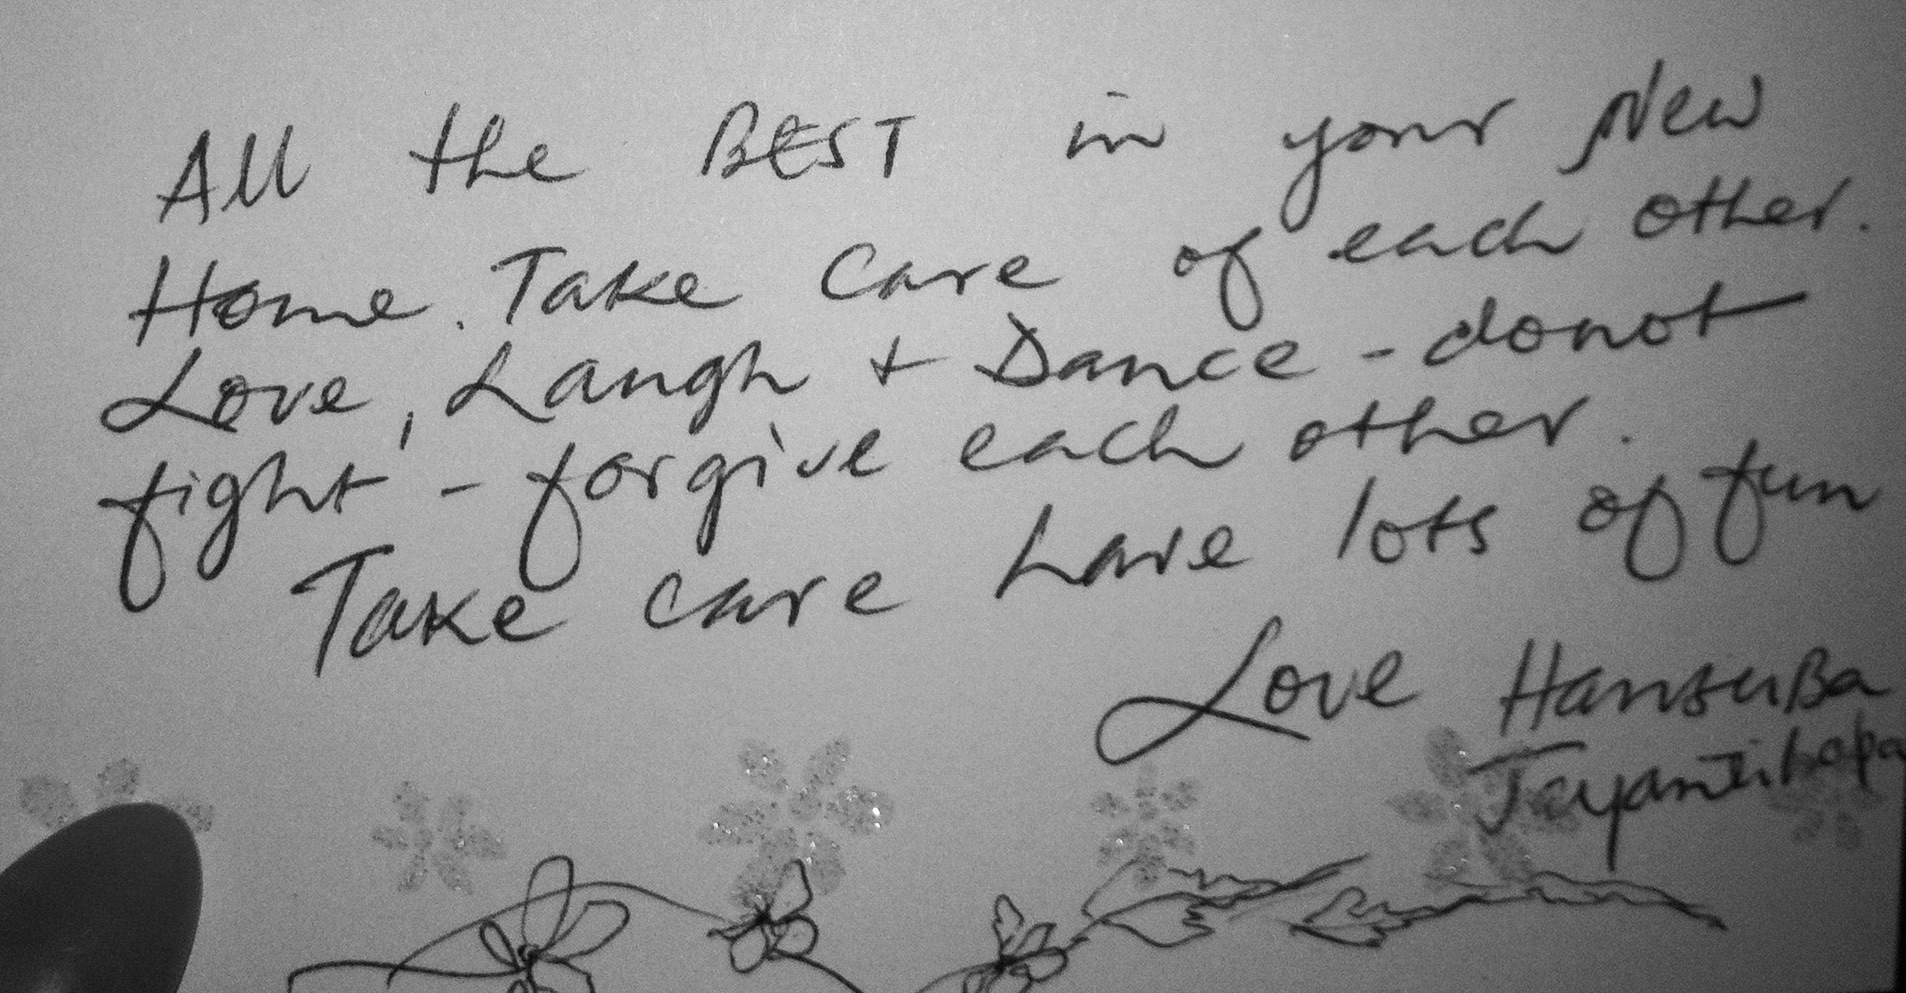 All the BEST in your New
Home. Take Care of each other.
Love, Laugh + Dance - donot
fight - forgive each other.
Take care have lots of fun
Love HansuBa